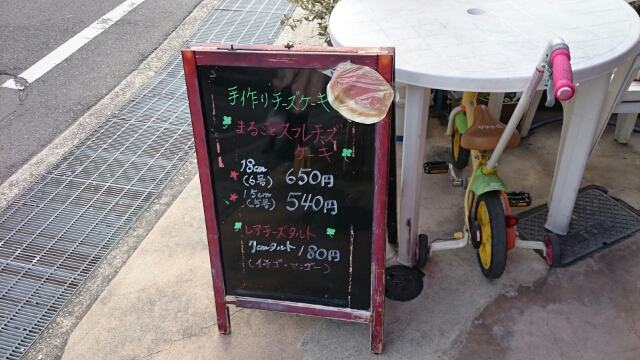 手作りチーズケーキ
まるごとスフレチーズ
ケーキ
18cm
(6号) 650円
15cm
(5号) 540円
レアチーズタルト
7cmタルト 180円
(イチゴ・マンゴー)